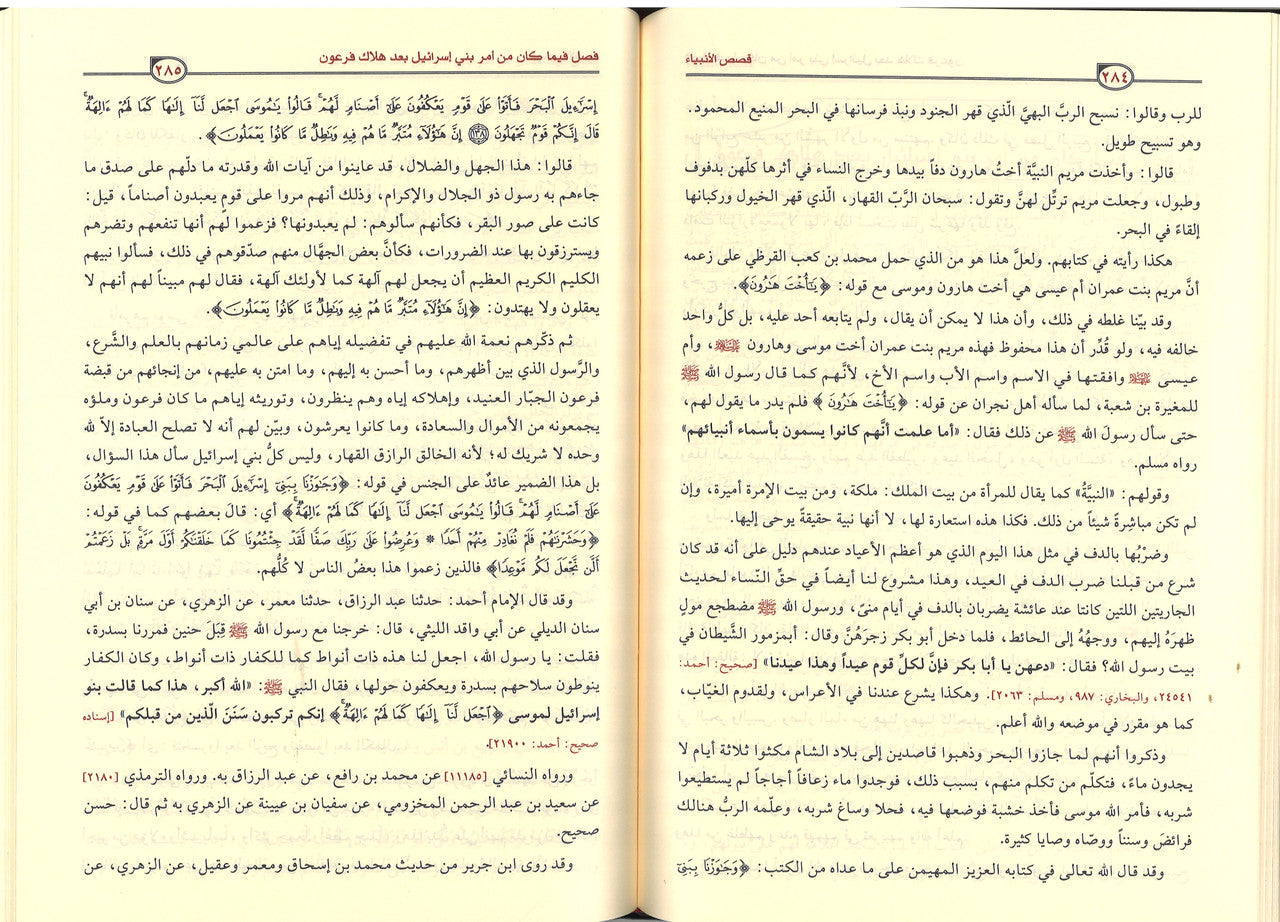 قصص الأنبياء
٢٨٤
للرب وقالوا: نسبح الربَّ البهيَّ الّذي قهر الجنود ونبذ فرسانها في البحر المنيع المحمود.
وهو تسبيح طويل.
قالوا: وأخذت مريم النبيَّة أختُ هارون دفاً بيدها وخرج النساء في أثرها كلّهن بدفوف
وطبول، وجعلت مريم ترتِّل لهنَّ وتقول: سبحان الرَّبّ القهار، الّذي قهر الخيول وركبانها
إلقاءً في البحر.
هكذا رأيته في كتابهم. ولعلَّ هذا هو من الذي حمل محمد بن كعب القرظي على زعمه
أنَّ مريم بنت عمران أم عيسى هي أخت هارون وموسى مع قوله: ﴿يَٰٓأُخْتَ هَٰرُونَ﴾.
وقد بيّنا غلطه في ذلك، وأن هذا لا يمكن أن يقال، ولم يتابعه أحد عليه، بل كلُّ واحد
خالفه فيه، ولو قُدِّر أن هذا محفوظ فهذه مريم بنت عمران أخت موسى وهارون ﷺ، وأم
عيسى ﷺ وافقتها في الاسم واسم الأب واسم الأخ، لأنَّهم كما قال رسول الله ﷺ
للمغيرة بن شعبة، لما سأله أهل نجران عن قوله: ﴿يَٰٓأُخْتَ هَٰرُونَ﴾ فلم يدر ما يقول لهم،
حتى سأل رسولَ الله ﷺ عن ذلك فقال: «أما علمت أنَّهم كانوا يسمون بأسماء أنبيائهم»
رواه مسلم.
وقولهم: «النبيَّةُ» كما يقال للمرأة من بيت الملك: ملكة، ومن بيت الإمرة أميرة، وإن
لم تكن مباشِرةً شيئاً من ذلك. فكذا هذه استعارة لها، لا أنها نبية حقيقةً يوحى إليها.
وضرْبُها بالدف في مثل هذا اليوم الذي هو أعظم الأعياد عندهم دليل على أنه قد كان
شرع من قبلنا ضرب الدف في العيد، وهذا مشروع لنا أيضاً في حقِّ النّساء لحديث
الجاريتين اللتين كانتا عند عائشة يضربان بالدف في أيام منىً، ورسول الله ﷺ مضطجع مولٍ
ظهرَهُ إليهم، ووجهُهُ إلى الحائط، فلما دخل أبو بكر زجرَهُنَّ وقال: أبمزمور الشَّيطان في
بيت رسول الله؟ فقال: «دعهن يا أبا بكر فإنَّ لكلِّ قوم عيداً وهذا عيدنا» [صحيح: أحمد:
٢٤٥٤١، والبخاري: ٩٨٧، ومسلم: ٢٠٦٣]. وهكذا يشرع عندنا في الأعراس، ولقدوم الغيّاب،
كما هو مقرر في موضعه والله أعلم.
وذكروا أنهم لما جازوا البحر وذهبوا قاصدين إلى بلاد الشام مكثوا ثلاثة أيام لا
يجدون ماءً، فتكلّم من تكلم منهم، بسبب ذلك، فوجدوا ماء زعافاً أجاجاً لم يستطيعوا
شربه، فأمر الله موسى فأخذ خشبة فوضعها فيه، فحلا وساغ شربه، وعلّمه الربُّ هنالك
فرائضَ وسنناً ووصّاه وصايا كثيرة.
وقد قال الله تعالى في كتابه العزيز المهيمن على ما عداه من الكتب: ﴿وَجَٰوَزْنَا بِبَنِىٓ
فصل فيما كان من أمر بني إسرائيل بعد هلاك فرعون
٢٨٥
إِسْرَٰٓءِيلَ ٱلْبَحْرَ فَأَتَوْا۟ عَلَىٰ قَوْمٍ يَعْكُفُونَ عَلَىٰٓ أَصْنَامٍ لَّهُمْ ۚ قَالُوا۟ يَٰمُوسَى ٱجْعَل لَّنَآ إِلَٰهًا كَمَا لَهُمْ ءَالِهَةٌ ۚ
قَالَ إِنَّكُمْ قَوْمٌ تَجْهَلُونَ ١٣٨ إِنَّ هَٰٓؤُلَآءِ مُتَبَّرٌ مَّا هُمْ فِيهِ وَبَٰطِلٌ مَّا كَانُوا۟ يَعْمَلُونَ﴾.
قالوا: هذا الجهل والضلال، قد عاينوا من آيات الله وقدرته ما دلّهم على صدق ما
جاءهم به رسول ذو الجلال والإكرام، وذلك أنهم مروا على قوم يعبدون أصناماً، قيل:
كانت على صور البقر، فكأنهم سألوهم: لم يعبدونها؟ فزعموا لهم أنها تنفعهم وتضرهم
ويسترزقون بها عند الضرورات، فكأنَّ بعض الجهَّال منهم صدّقوهم في ذلك، فسألوا نبيهم
الكليم الكريم العظيم أن يجعل لهم آلهة كما لأولئك آلهة، فقال لهم مبيناً لهم أنهم لا
يعقلون ولا يهتدون: ﴿إِنَّ هَٰٓؤُلَآءِ مُتَبَّرٌ مَّا هُمْ فِيهِ وَبَٰطِلٌ مَّا كَانُوا۟ يَعْمَلُونَ﴾.
ثم ذكّرهم نعمة الله عليهم في تفضيله إياهم على عالمي زمانهم بالعلم والشَّرع،
والرَّسول الذي بين أظهرهم، وما أحسن به إليهم، وما امتن به عليهم، من إنجائهم من قبضة
فرعون الجبّار العنيد، وإهلاكه إياه وهم ينظرون، وتوريثه إياهم ما كان فرعون وملؤه
يجمعونه من الأموال والسعادة، وما كانوا يعرشون، وبيّن لهم أنه لا تصلح العبادة إلاّ لله
وحده لا شريك له؛ لأنه الخالق الرازق القهار، وليس كلُّ بني إسرائيل سأل هذا السؤال،
بل هذا الضمير عائدٌ على الجنس في قوله: ﴿وَجَٰوَزْنَا بِبَنِىٓ إِسْرَٰٓءِيلَ ٱلْبَحْرَ فَأَتَوْا۟ عَلَىٰ قَوْمٍ يَعْكُفُونَ
عَلَىٰٓ أَصْنَامٍ لَّهُمْ ۚ قَالُوا۟ يَٰمُوسَى ٱجْعَل لَّنَآ إِلَٰهًا كَمَا لَهُمْ ءَالِهَةٌ﴾ أي: قالَ بعضهم كما في قوله:
﴿وَحَشَرْنَٰهُمْ فَلَمْ نُغَادِرْ مِنْهُمْ أَحَدًا * وَعُرِضُوا۟ عَلَىٰ رَبِّكَ صَفًّا لَّقَدْ جِئْتُمُونَا كَمَا خَلَقْنَٰكُمْ أَوَّلَ مَرَّةٍۭ ۚ بَلْ زَعَمْتُمْ
أَلَّن نَّجْعَلَ لَكُم مَّوْعِدًا﴾ فالذين زعموا هذا بعضُ الناس لا كُلُّهم.
وقد قال الإمام أحمد: حدثنا عبد الرزاق، حدثنا معمر، عن الزهري، عن سنان بن أبي
سنان الديلي عن أبي واقد الليثي، قال: خرجنا مع رسول الله ﷺ قِبَلَ حنين فمررنا بسدرة،
فقلت: يا رسول الله، اجعل لنا هذه ذات أنواط كما للكفار ذات أنواط، وكان الكفار
ينوطون سلاحهم بسدرة ويعكفون حولها، فقال النبي ﷺ: «الله أكبر، هذا كما قالت بنو
إسرائيل لموسى ﴿ٱجْعَل لَّنَآ إِلَٰهًا كَمَا لَهُمْ ءَالِهَةٌ ۚ﴾ إنكم تركبون سَنَنَ الّذين من قبلكم» [إسناده
صحيح: أحمد: ٢١٩٠٠].
ورواه النسائي [١١١٨٥] عن محمد بن رافع، عن عبد الرزاق به. ورواه الترمذي [٢١٨٠]
عن سعيد بن عبد الرحمن المخزومي، عن سفيان بن عيينة عن الزهري به ثم قال: حسن
صحيح.
وقد روى ابن جرير من حديث محمد بن إسحاق ومعمر وعقيل، عن الزهري، عن